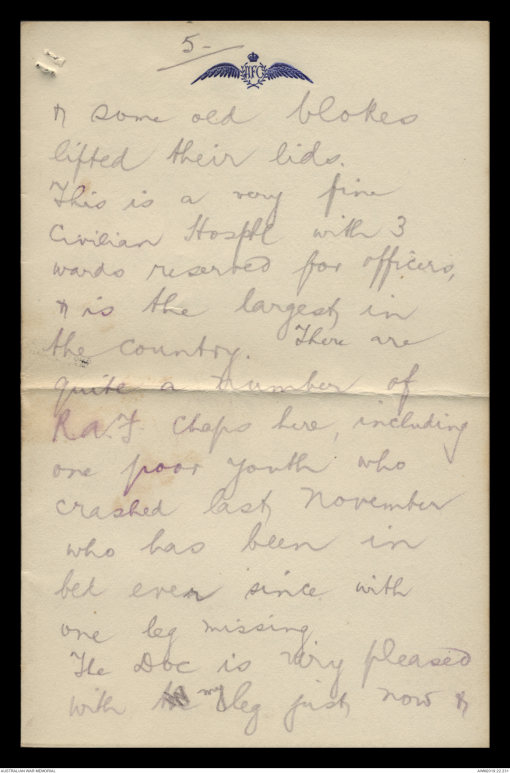 5-
RFC
& some old blokes
lifted their lids.
This is a very fine
Civilian Hosptl with 3
wards reserved for officers,
& is the largest in
the country. There are
quite a number of
R.a.F. chaps here, including
one poor youth who
crashed last November
who has been in
bed ever since with
one leg missing
The Doc is very pleased
with my leg just now &
AUSTRALIAN WAR MEMORIAL